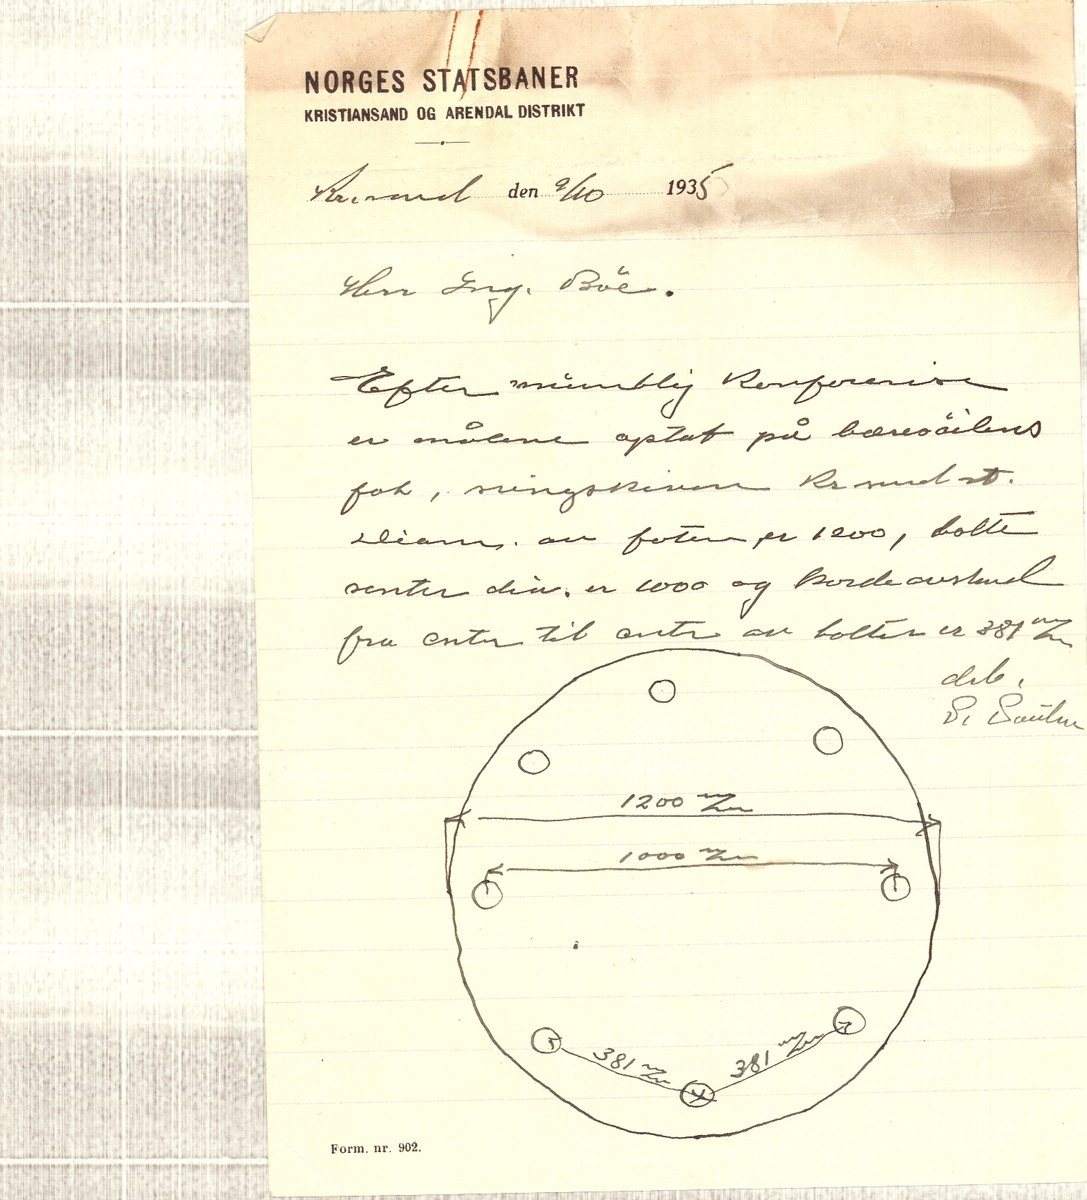 NORGES STATSBANER
KRISTIANSAND OG ARENDAL DISTRIKT
Kr.sand den 9/10 1935
Herr Ing. Böe.
Efter muntlig konferense
er målene optat på bæresöilens
fot, svingskiven Kr.sand st.
Diam. av foten er 1200, bolte
senter dia. er 1000 og kordeavstand
fra center til center av bolter er 381 m/m
drb.
1200 m/m
1000 m/m
381 m/m
381 m/m
Form. nr. 902.